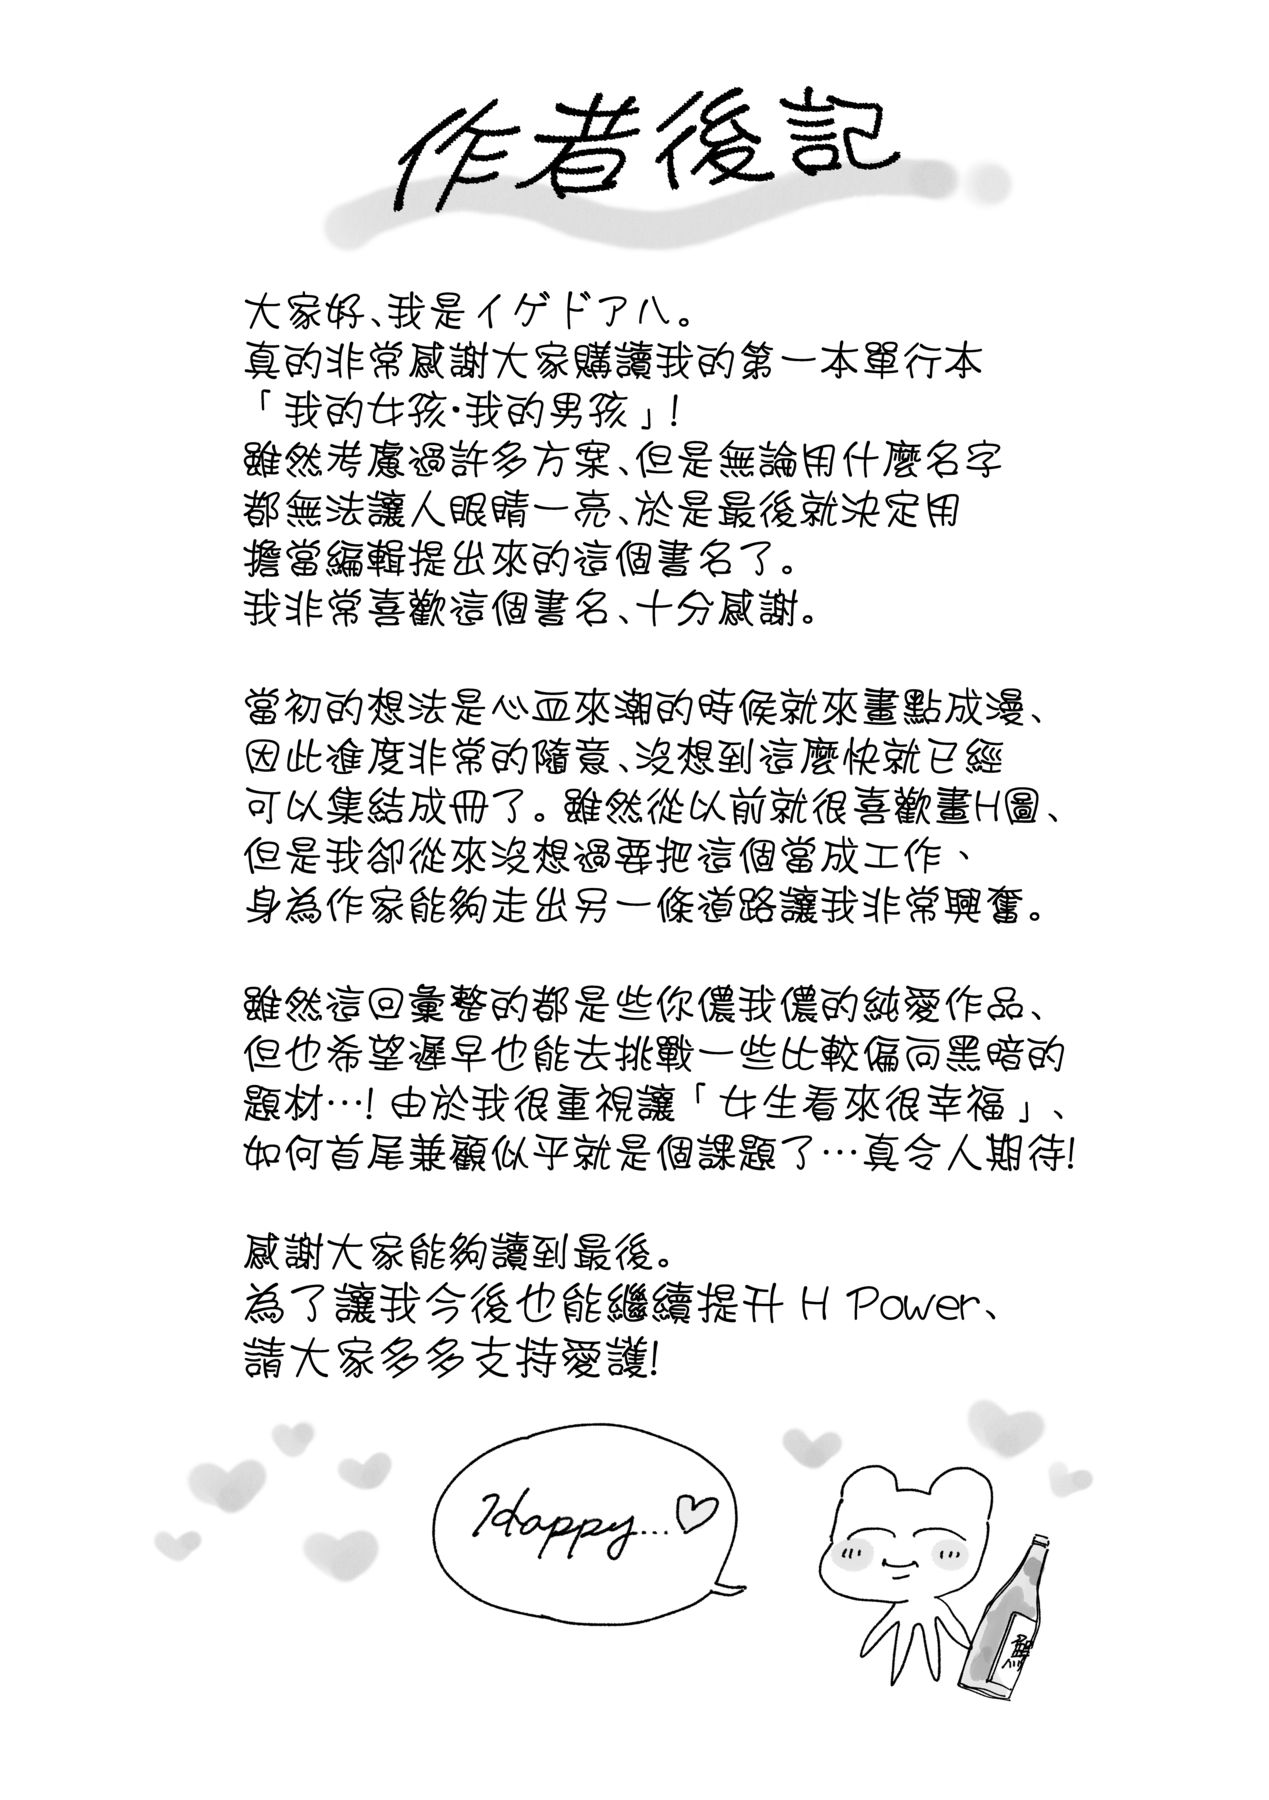 作者後記
大家好、我是イゲドアハ。
真的非常感謝大家購讀我的第一本單行本
「我的女孩・我的男孩」!
雖然考慮過許多方案、但是無論用什麼名字
都無法讓人眼睛一亮、於是最後就決定用
擔當編輯提出來的這個書名了。
我非常喜歡這個書名、十分感謝。
當初的想法是心血來潮的時候就來畫點成漫、
因此進度非常的隨意、沒想到這麼快就已經
可以集結成冊了。雖然從以前就很喜歡畫H圖、
但是我卻從來沒想過要把這個當成工作、
身為作家能夠走出另一條道路讓我非常興奮。
雖然這回彙整的都是些你儂我儂的純愛作品、
但也希望遲早也能去挑戰一些比較偏向黑暗的
題材…!由於我很重視讓「女生看來很幸福」、
如何首尾兼顧似乎就是個課題了…真令人期待!
感謝大家能夠讀到最後。
為了讓我今後也能繼續提升 H Power、
請大家多多支持愛護!
Happy...♡